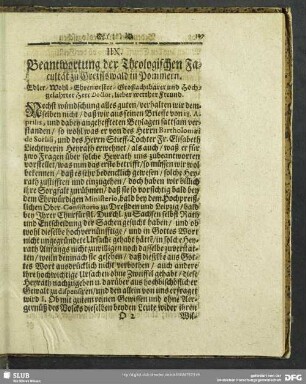 IIX.
Beantwortung der Theologischen Fa-
cultät zu Greiffswald in Pommern.
Edler, Wohl-Ehrenvester, Großachtbarer und Hoch-
gelahrter Herr Doctor, lieber werther Freund.
Nechst wündschung alles guten, verhalten wir dem-
selben nicht, daß wir aus seinen Briefe von 13. A-
prilis, und dabey angehefteten Beylagen sattsam ver-
standen, so wohl was er von des Herrn Bartholomæi
de Sartiis, und des Herrn Stieff-Tochter Fr. Elisabeth
Liechtwerin Heyrath erwehnet, als auch, was er für
zwo Fragen über solche Heyrath uns zubeantworten
vorstellet, was nun das erste betrifft, so müssen wir wol
bekennen, daß es sehr bedencklich gewesen, solche Hey-
rath zustifften und einzugehen, doch haben wir billich
ihre Sorgfalt zurühmen, daß sie so vorsichtig bald bey
dem Ehrwürdigen Ministerio, bald bey dem Hochpreiß-
lichen Ober-Consistorio zu Dreßden und Leipzig, bald
bey Ihrer Churfürstl. Durchl. zu Sachsen selbst Rath
und Entscheidung der Sachen gesucht haben, und ob
wohl dieselbe hochvernünfftige, und in Gottes Wort
nicht ungegründete Ursache gehabt hätte, in solche Hey-
rath Anfangs nicht zuwilligen noch dasselbe zuverstat-
ten, weiln dennoch sie gesehen, daß dieselbe aus Got-
tes Wort ausdrücklich nicht verbothen, auch andere
ihre hochwichtige Ursachen ohne Zweiffel gehabt, diese
Heyrath nachzugeben
wird 1. Ob mit gutem reinen Gewissen und ohne Aer-
gernüß des Volcks denselben beyden Leute wider ihren
O 2
Wil-